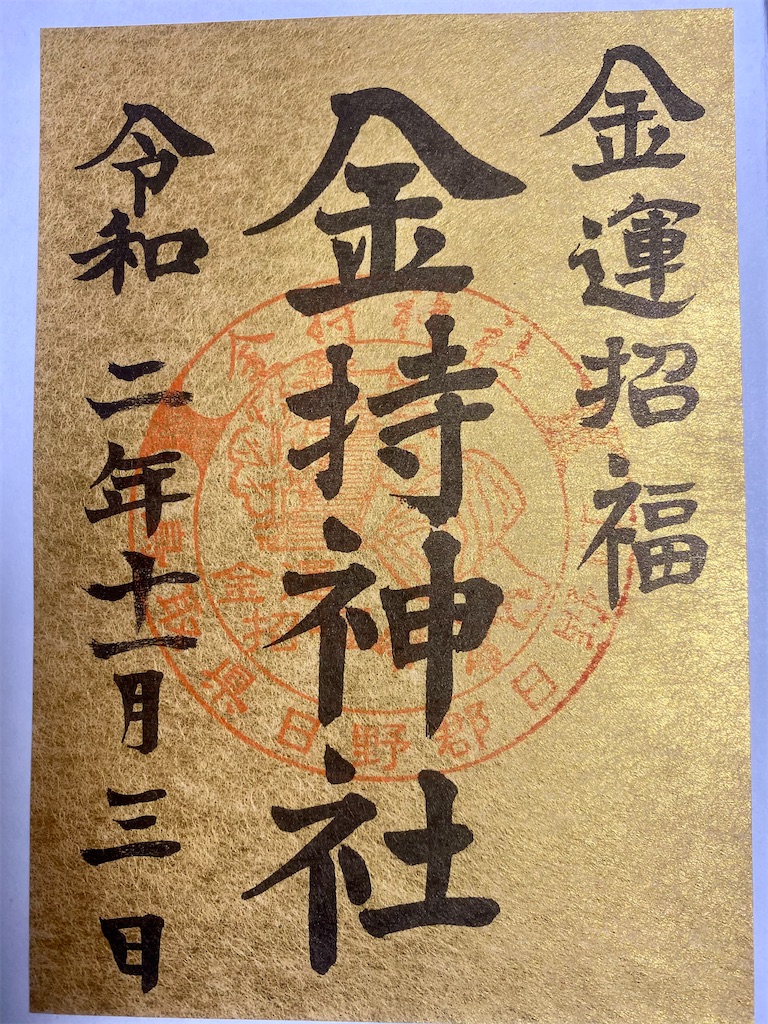 金運招福
金持神社
令和二年十一月三日
金持神社
鳥取県日野郡日野